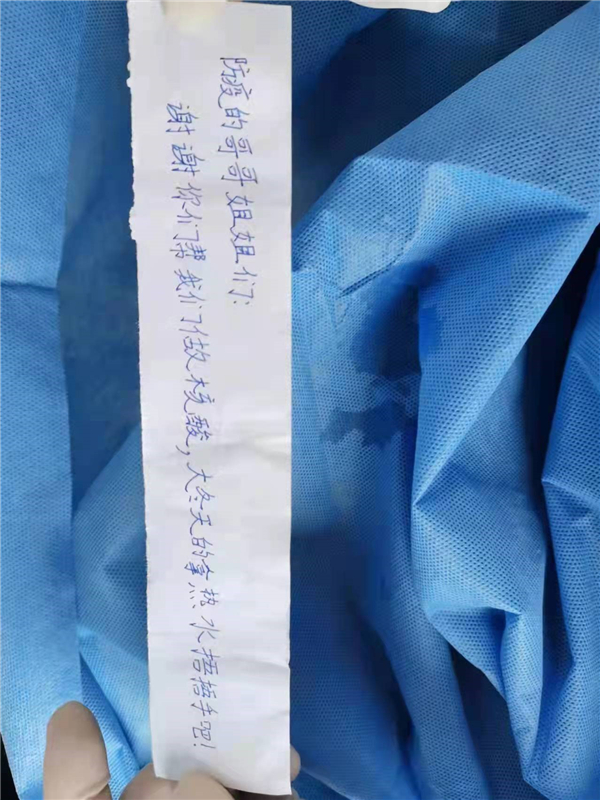 防疫的哥哥姐姐们:
谢谢你们帮我们做核酸,大冬天的拿热水捂捂手吧!